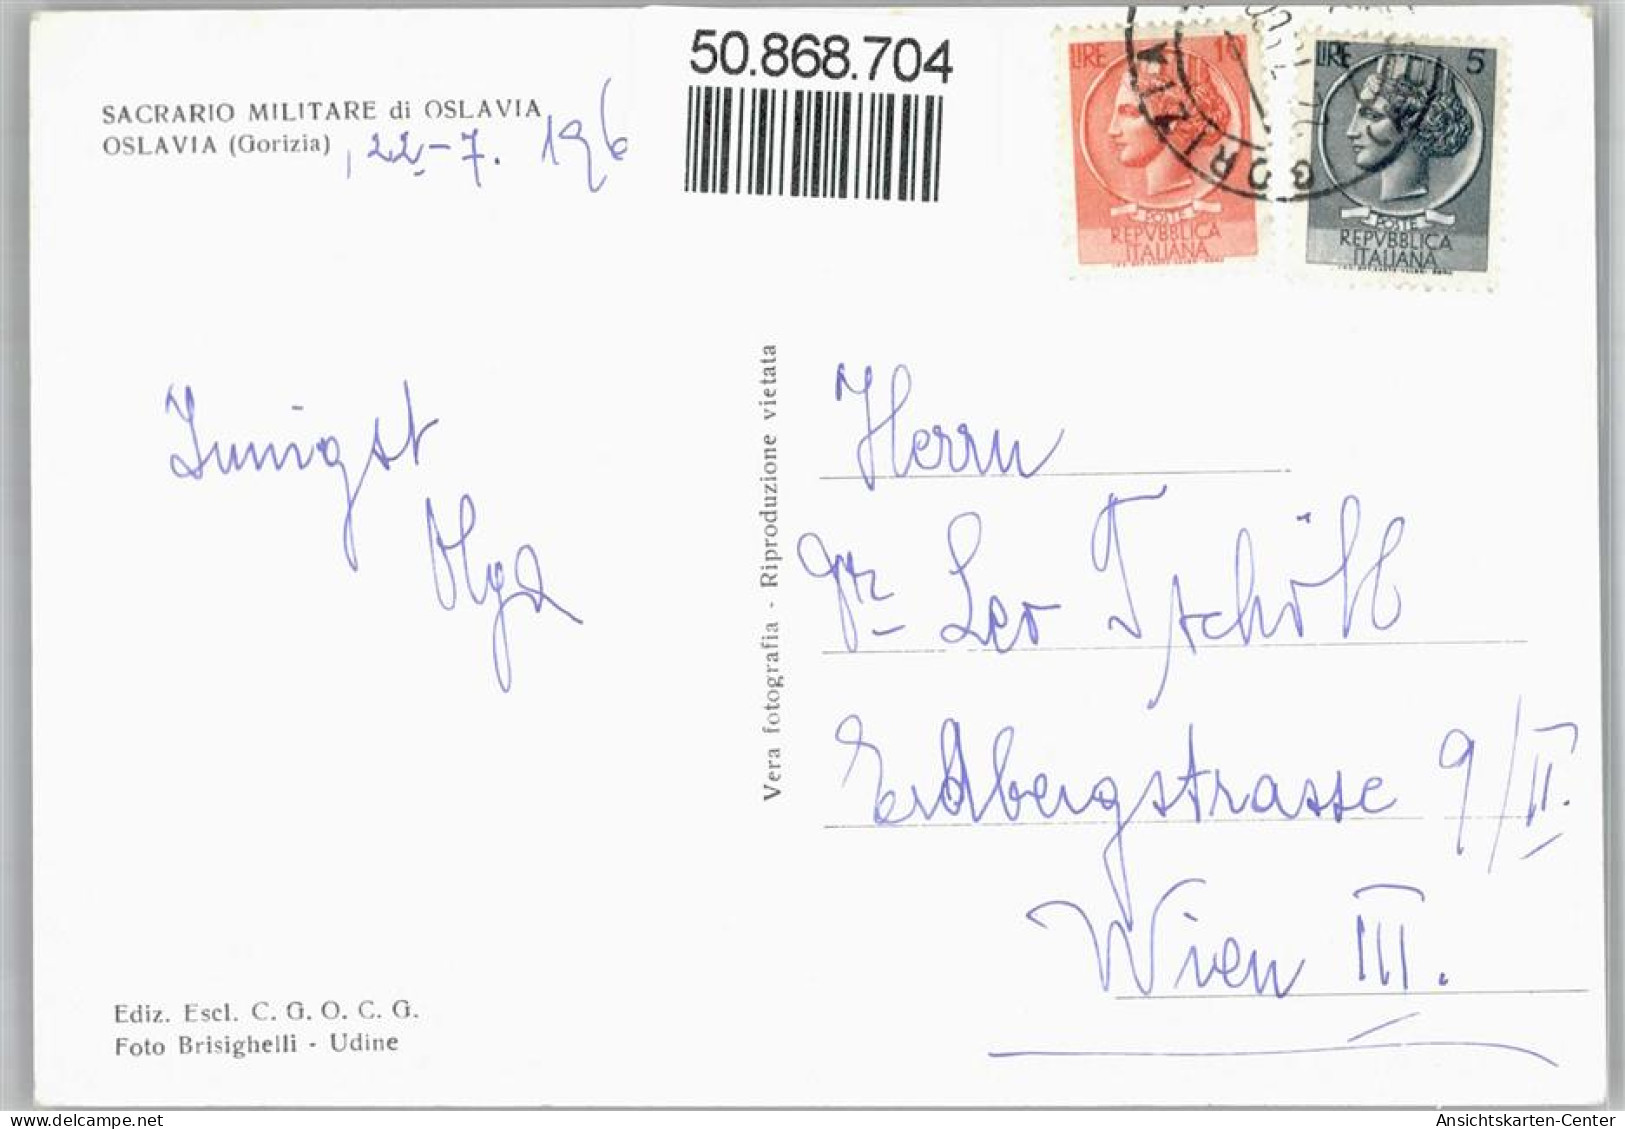 50.868.704
SACRARIO MILITARE di OSLAVIA
OSLAVIA (Gorizia)
, 22-7. 196
LIRE 10
POSTE
REPVBBLICA
ITALIANA
LIRE 5
POSTE
REPVBBLICA
ITALIANA
GORIZIA
Innigst
Olga
Vera fotografia - Riproduzione vietata
Herrn
Leo Tschöll
Erdbergstrasse 9/II.
Wien III.
Ediz. Escl. C. G. O. C. G.
Foto Brisighelli - Udine
Ansichtskarten-Center